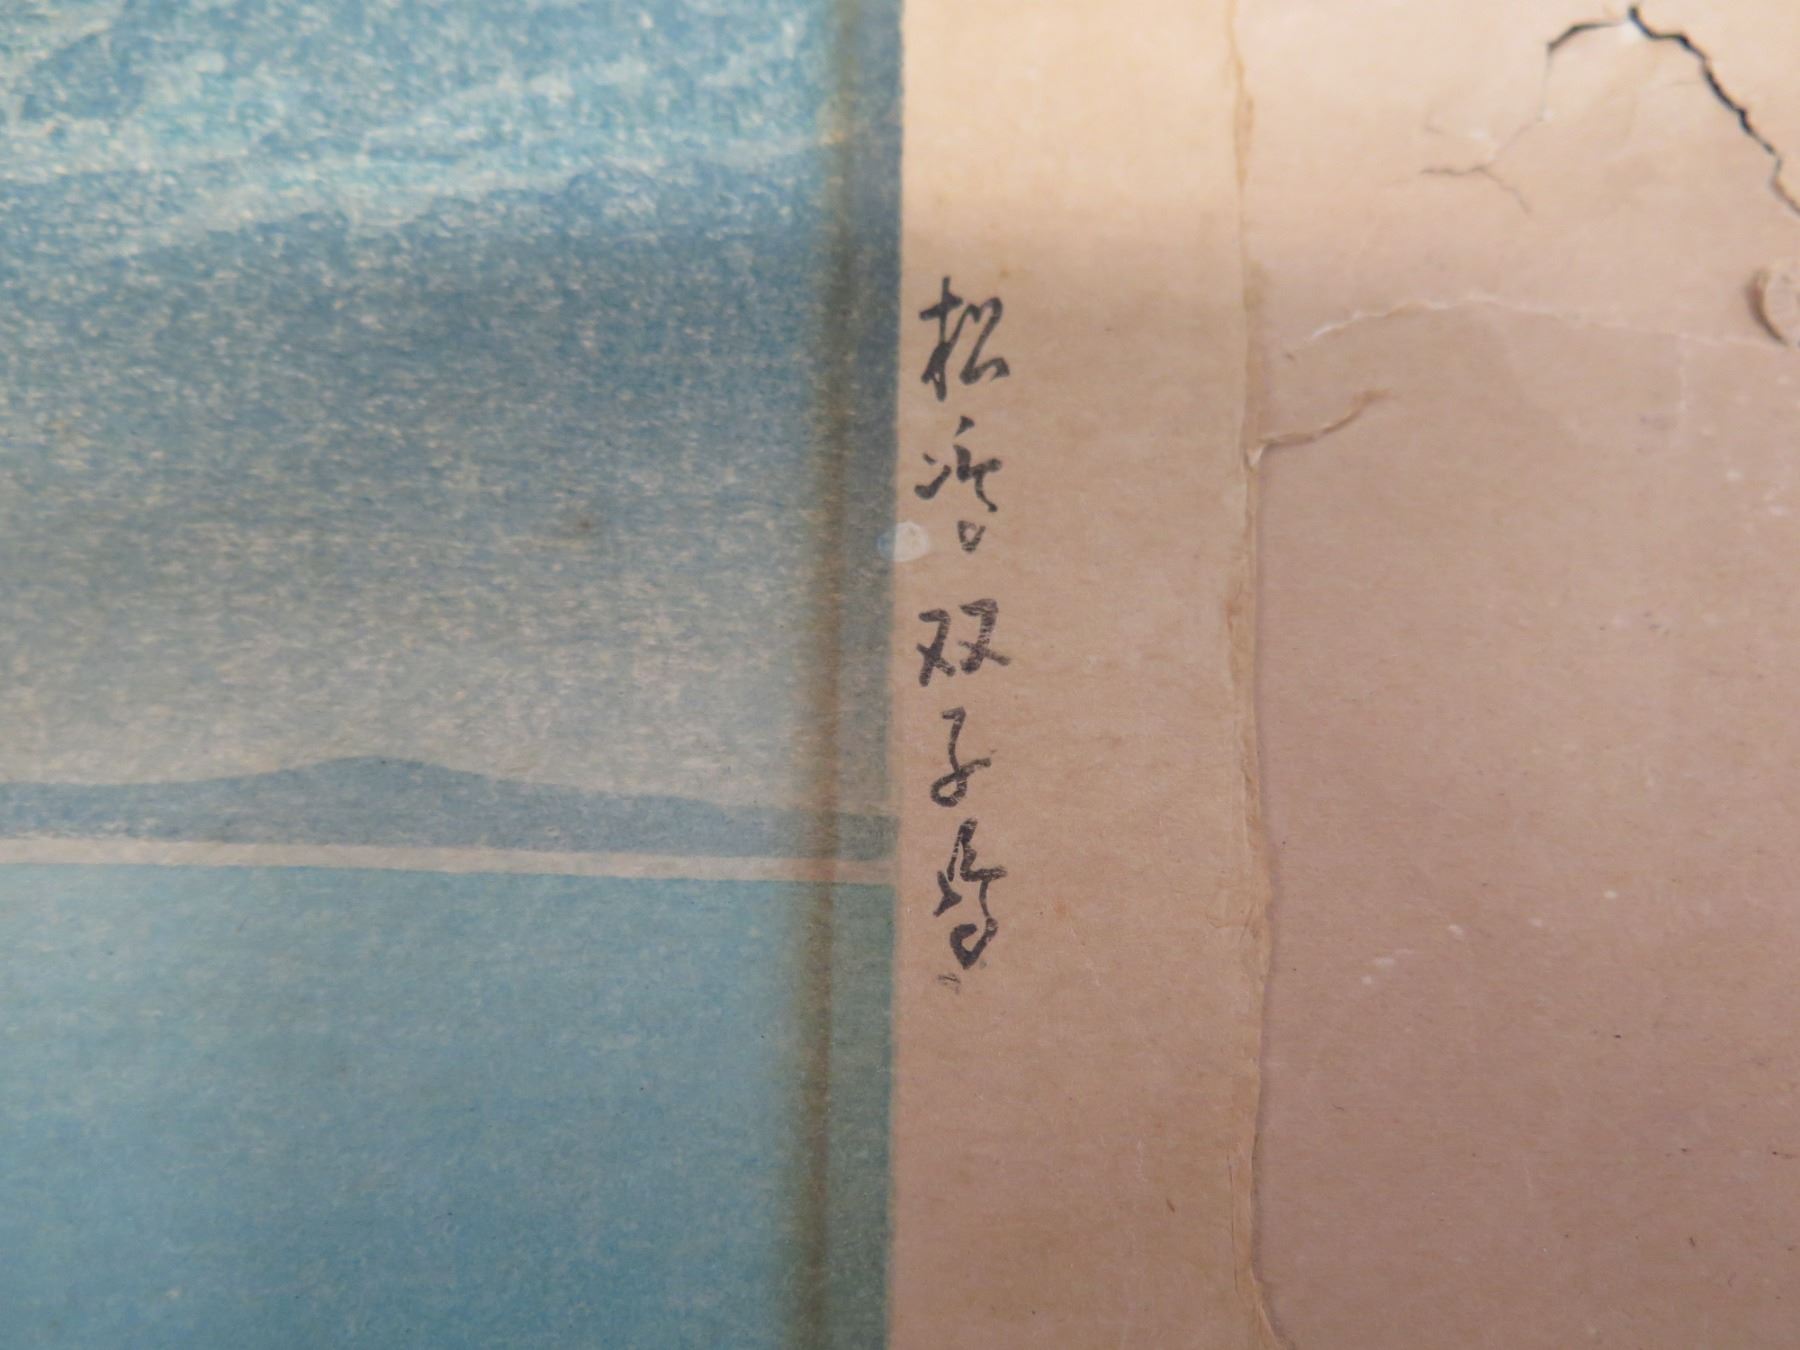 松島双子島